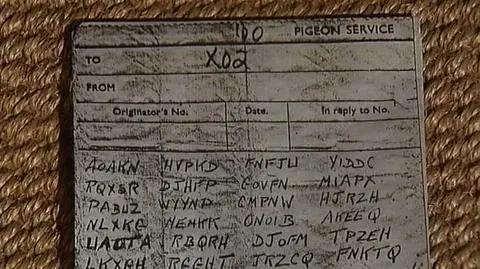 100 PIGEON SERVICE
TO X02
FROM
Originator's No. Date. In reply to No.
AOAKN HVPKD FNFJU YIDDC
RQXSR DJHFP GOVFN MIAPX
PABUZ WYYNP CMPNW HJRZH
NLXKG MEMKK ONOIB AKEEQ
UAOTA RBQRH DJOFM TPZEH
LKXGH RGGHT JRZCQ FNKTQ